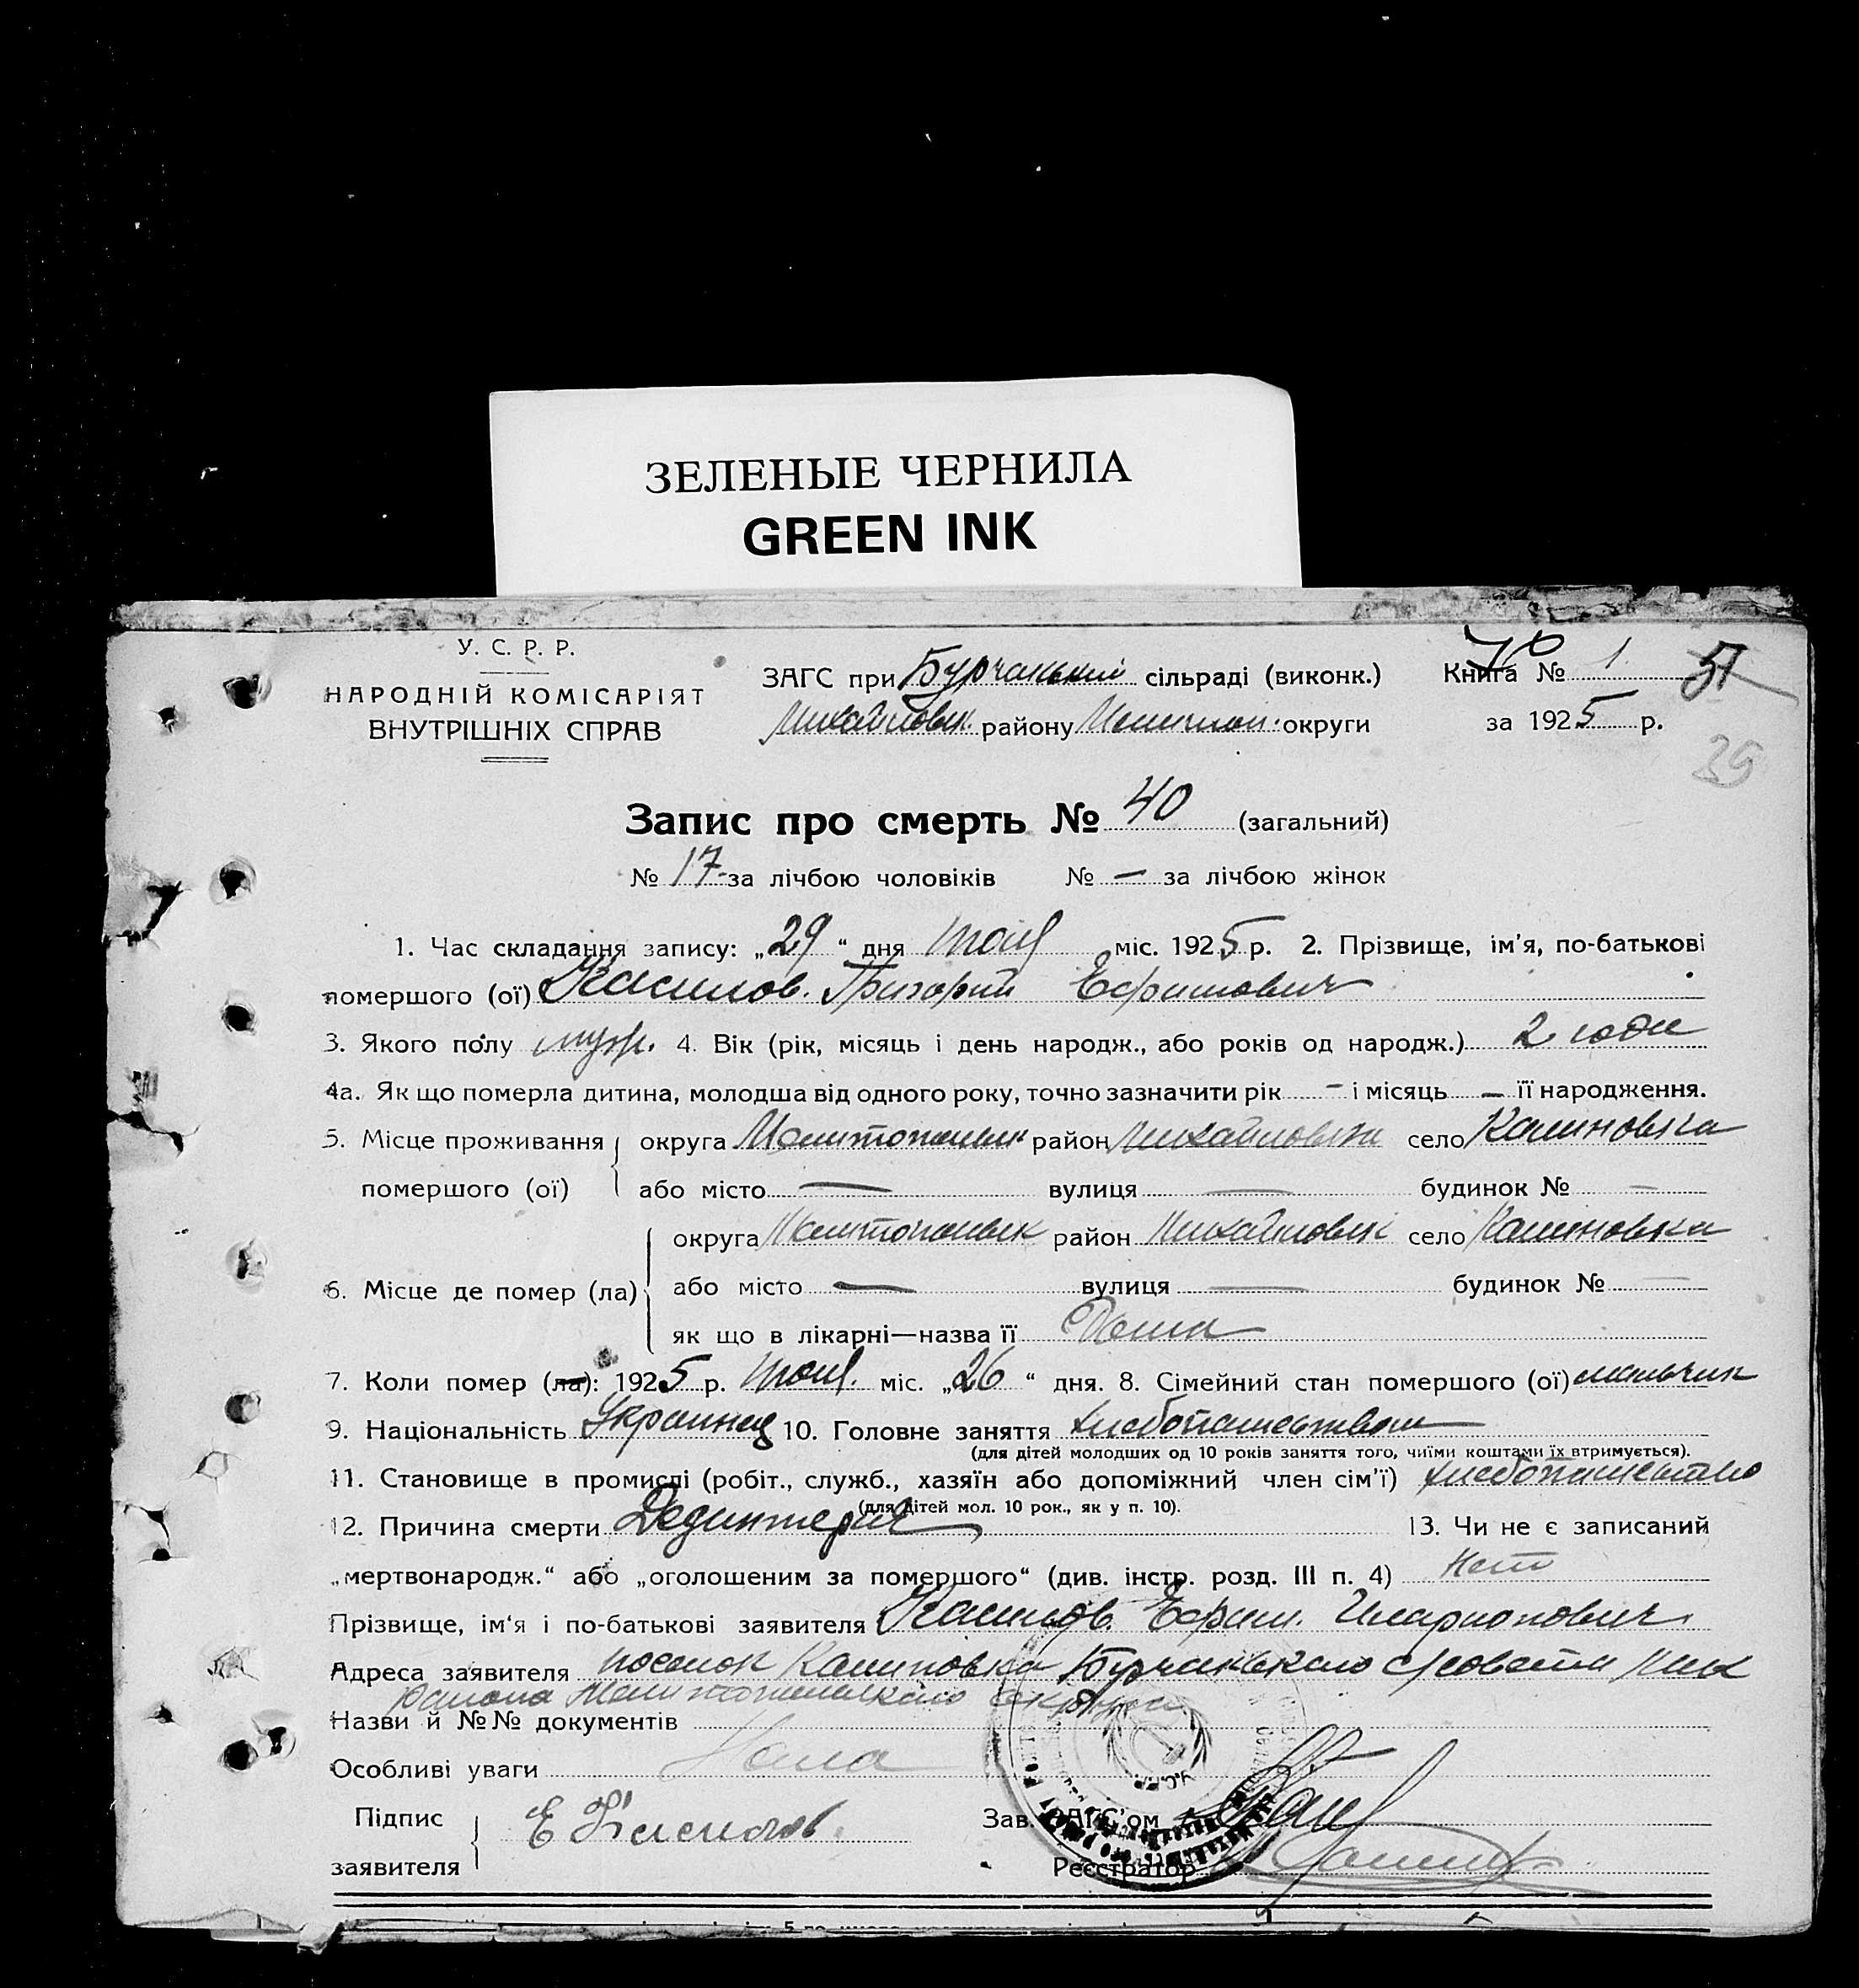 ЗЕЛЕНЫЕ ЧЕРНИЛА
GREEN INK
У. С. Р. Р.
НАРОДНІЙ КОМІСАРІЯТ
ВНУТРІШНІХ СПРАВ
ЗАГС при Бурчанський сільраді (виконк.)
Михайловск. району Мелитоп. округи
Книга № 1.
за 1925 р.
35
Запис про смерть № 40 (загальний)
№ 17 за лічбою чоловіків № — за лічбою жінок
1. Час складання запису: „29“ дня міс. 1925 р. 2. Прізвище, ім'я, по-батькові
помершого (ої) Григорий Ефимович
3. Якого полу муж. 4. Вік (рік, місяць і день народж., або років од народж.) 2 года
4а. Як що померла дитина, молодша від одного року, точно зазначити рік – і місяць – її народження.
5. Місце проживання помершого (ої) округа Мелитопольск район Михайловка село Калиновка
або місто — вулиця — будинок № —
6. Місце де помер (ла) округа Мелитопольск район Михайловск село Калиновка
або місто — вулиця — будинок № —
як що в лікарні—назва її Дома
7. Коли помер (ла): 1925 р. міс. „26“ дня. 8. Сімейний стан помершого (ої) мальчик
9. Національність Украинец 10. Головне заняття хлебопашеством
(для дітей молодших од 10 років заняття того, чиїми коштами їх втримується).
11. Становище в промислі (робіт., служб., хазяїн або допоміжний член сім'ї) хлебопашество
(для дітей мол. 10 рок., як у п. 10).
12. Причина смерти Дезинтерия 13. Чи не є записаний
„мертвонародж.“ або „оголошеним за помершого“ (див. інстр. розд. III п. 4) Нет
Прізвище, ім'я і по-батькові заявителя Ефим Иларионович
Адреса заявителя поселок Калиновка Бурчанского с/совета Мих
района Мелитопольского округа
Назви й №№ документів
Особливі уваги
Підпис
заявителя
Зав. ЗАГС'ом
Реєстратор
У.С.Р.Р.